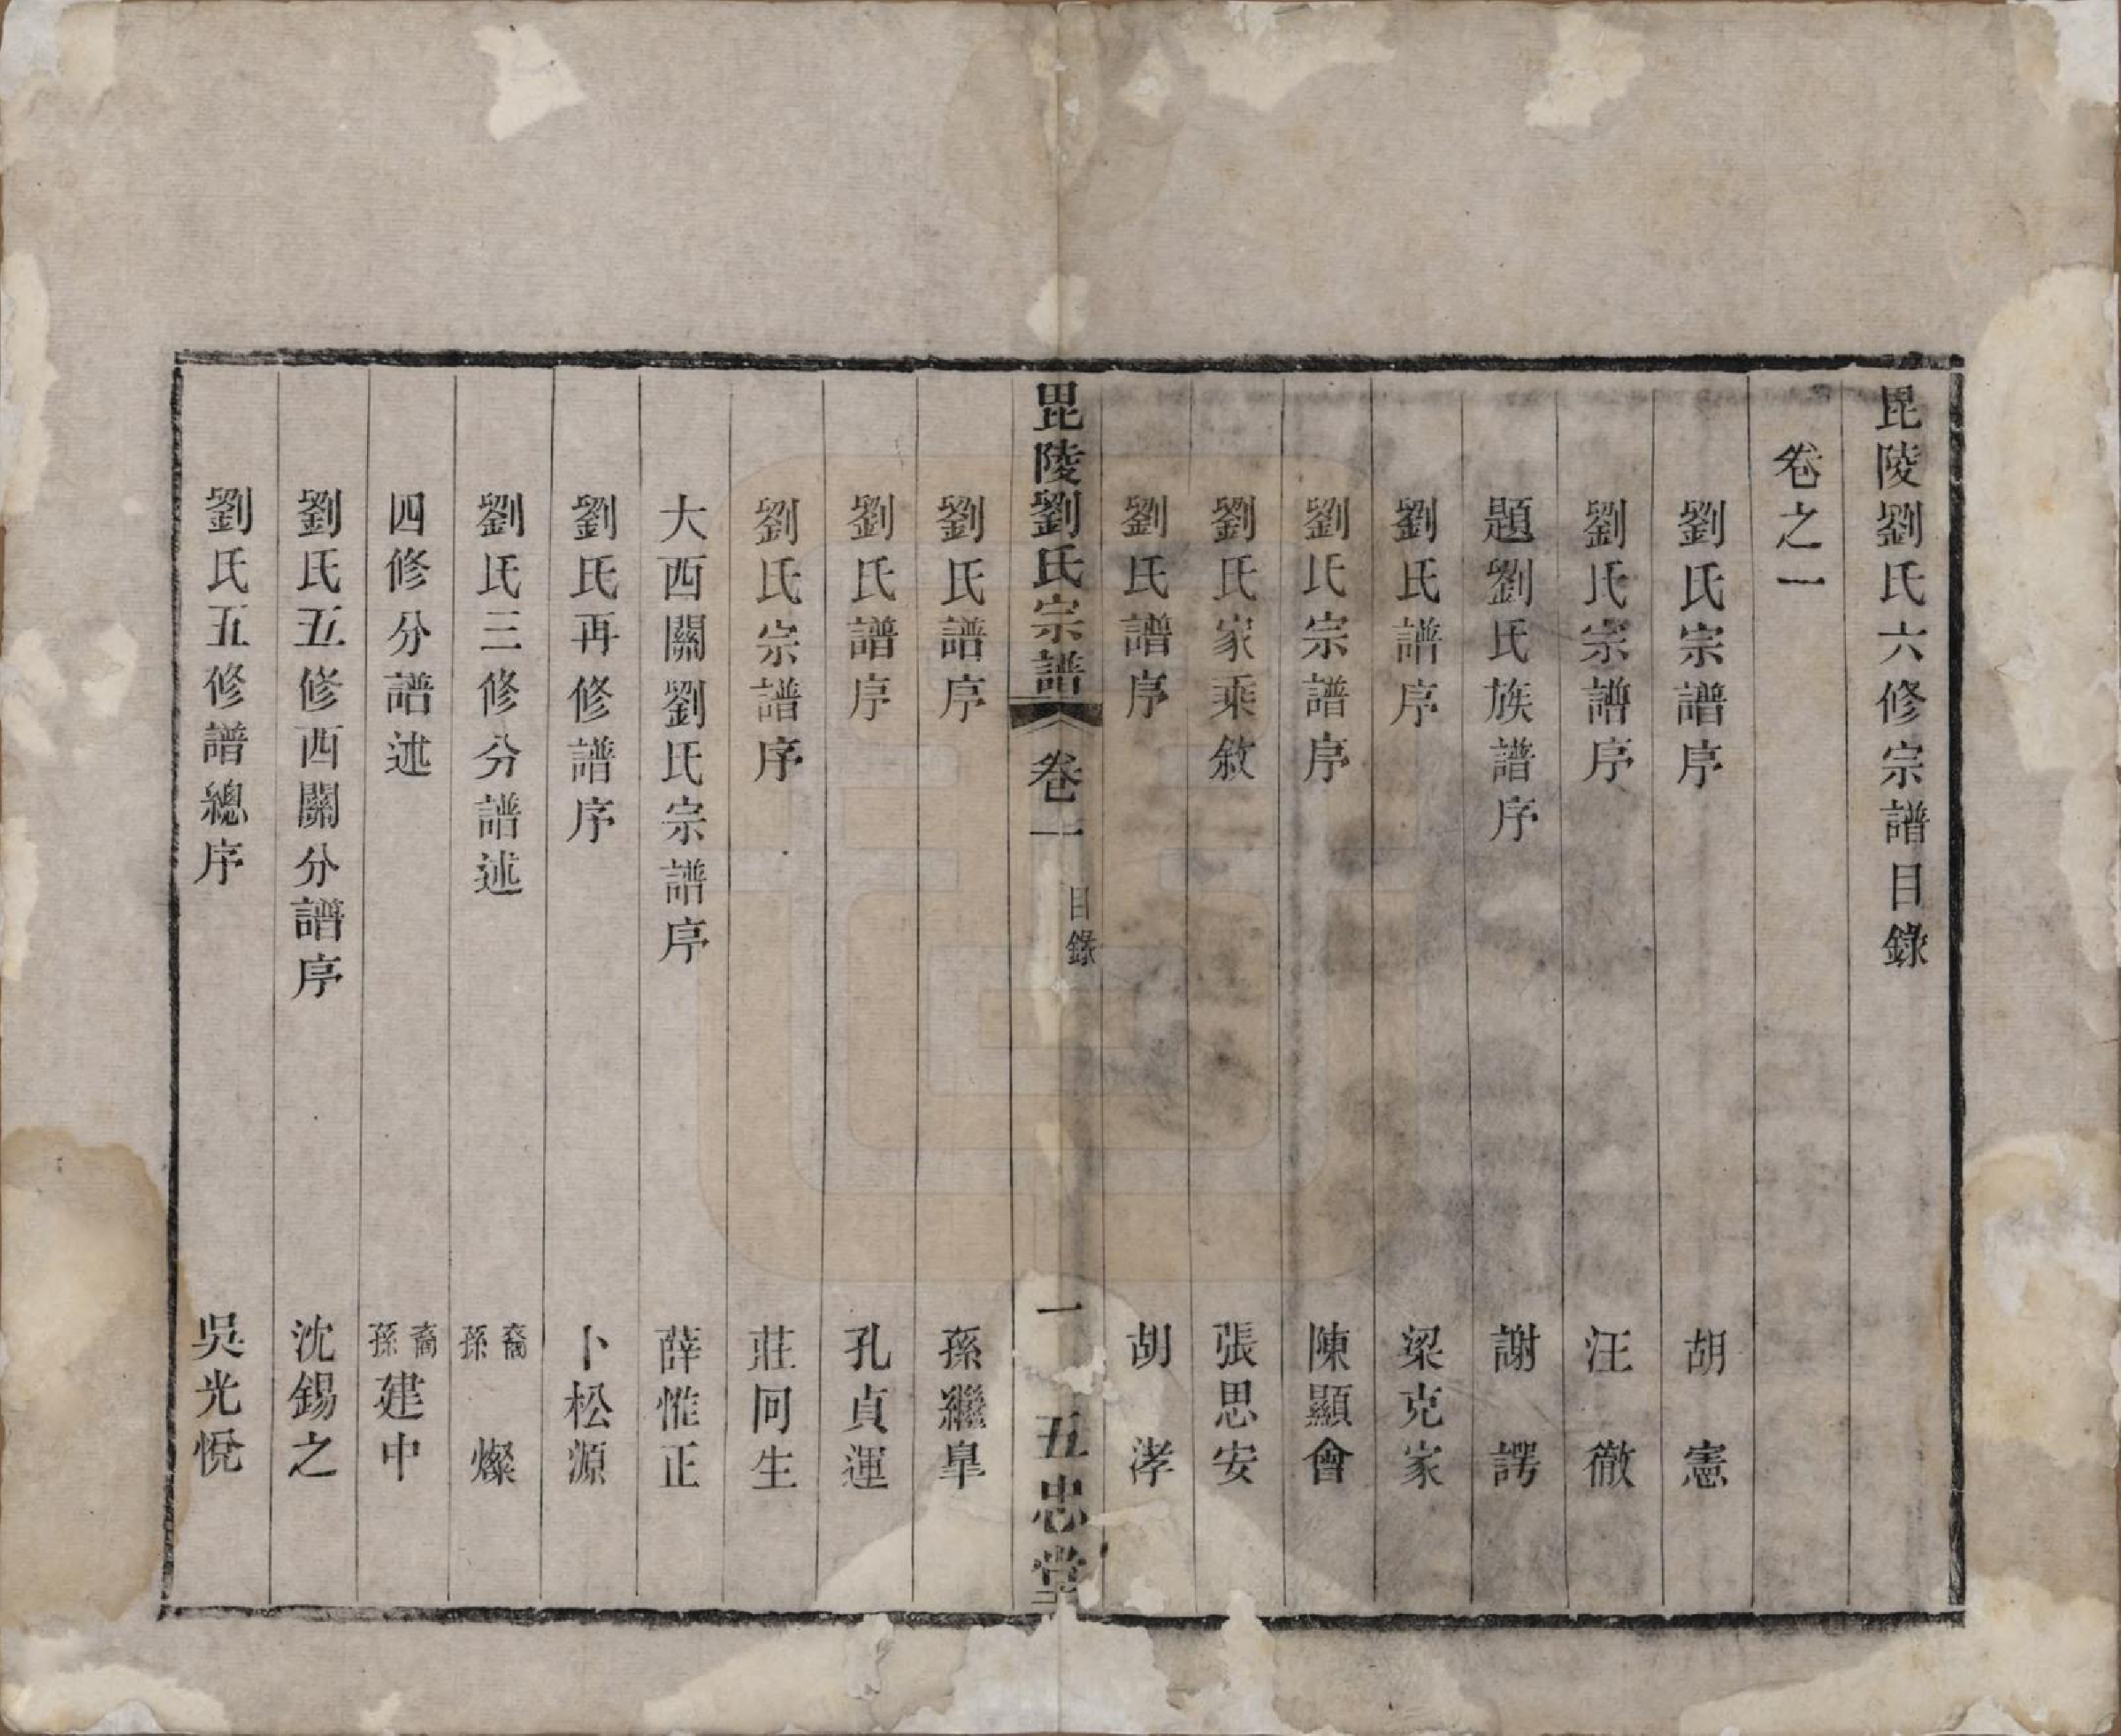 毘陵劉氏六修宗譜目錄
卷之一
劉氏宗譜序　胡憲
劉氏宗譜序　汪徹
題劉氏族譜序　謝諤
劉氏譜序　梁克家
劉氏宗譜序　陳顯會
劉氏家乘敘　張思安
劉氏譜序　胡涍
毘陵劉氏宗譜　卷一　目錄　一　五忠堂
劉氏譜序　孫繼臯
劉氏譜序　孔貞運
劉氏宗譜序　莊同生
大西關劉氏宗譜序　薛惟正
劉氏再修譜序　卜松源
劉氏三修分譜述　裔孫燦
四修分譜述　裔孫建中
劉氏五修西關分譜序　沈錫之
劉氏五修譜總序　吳光悅